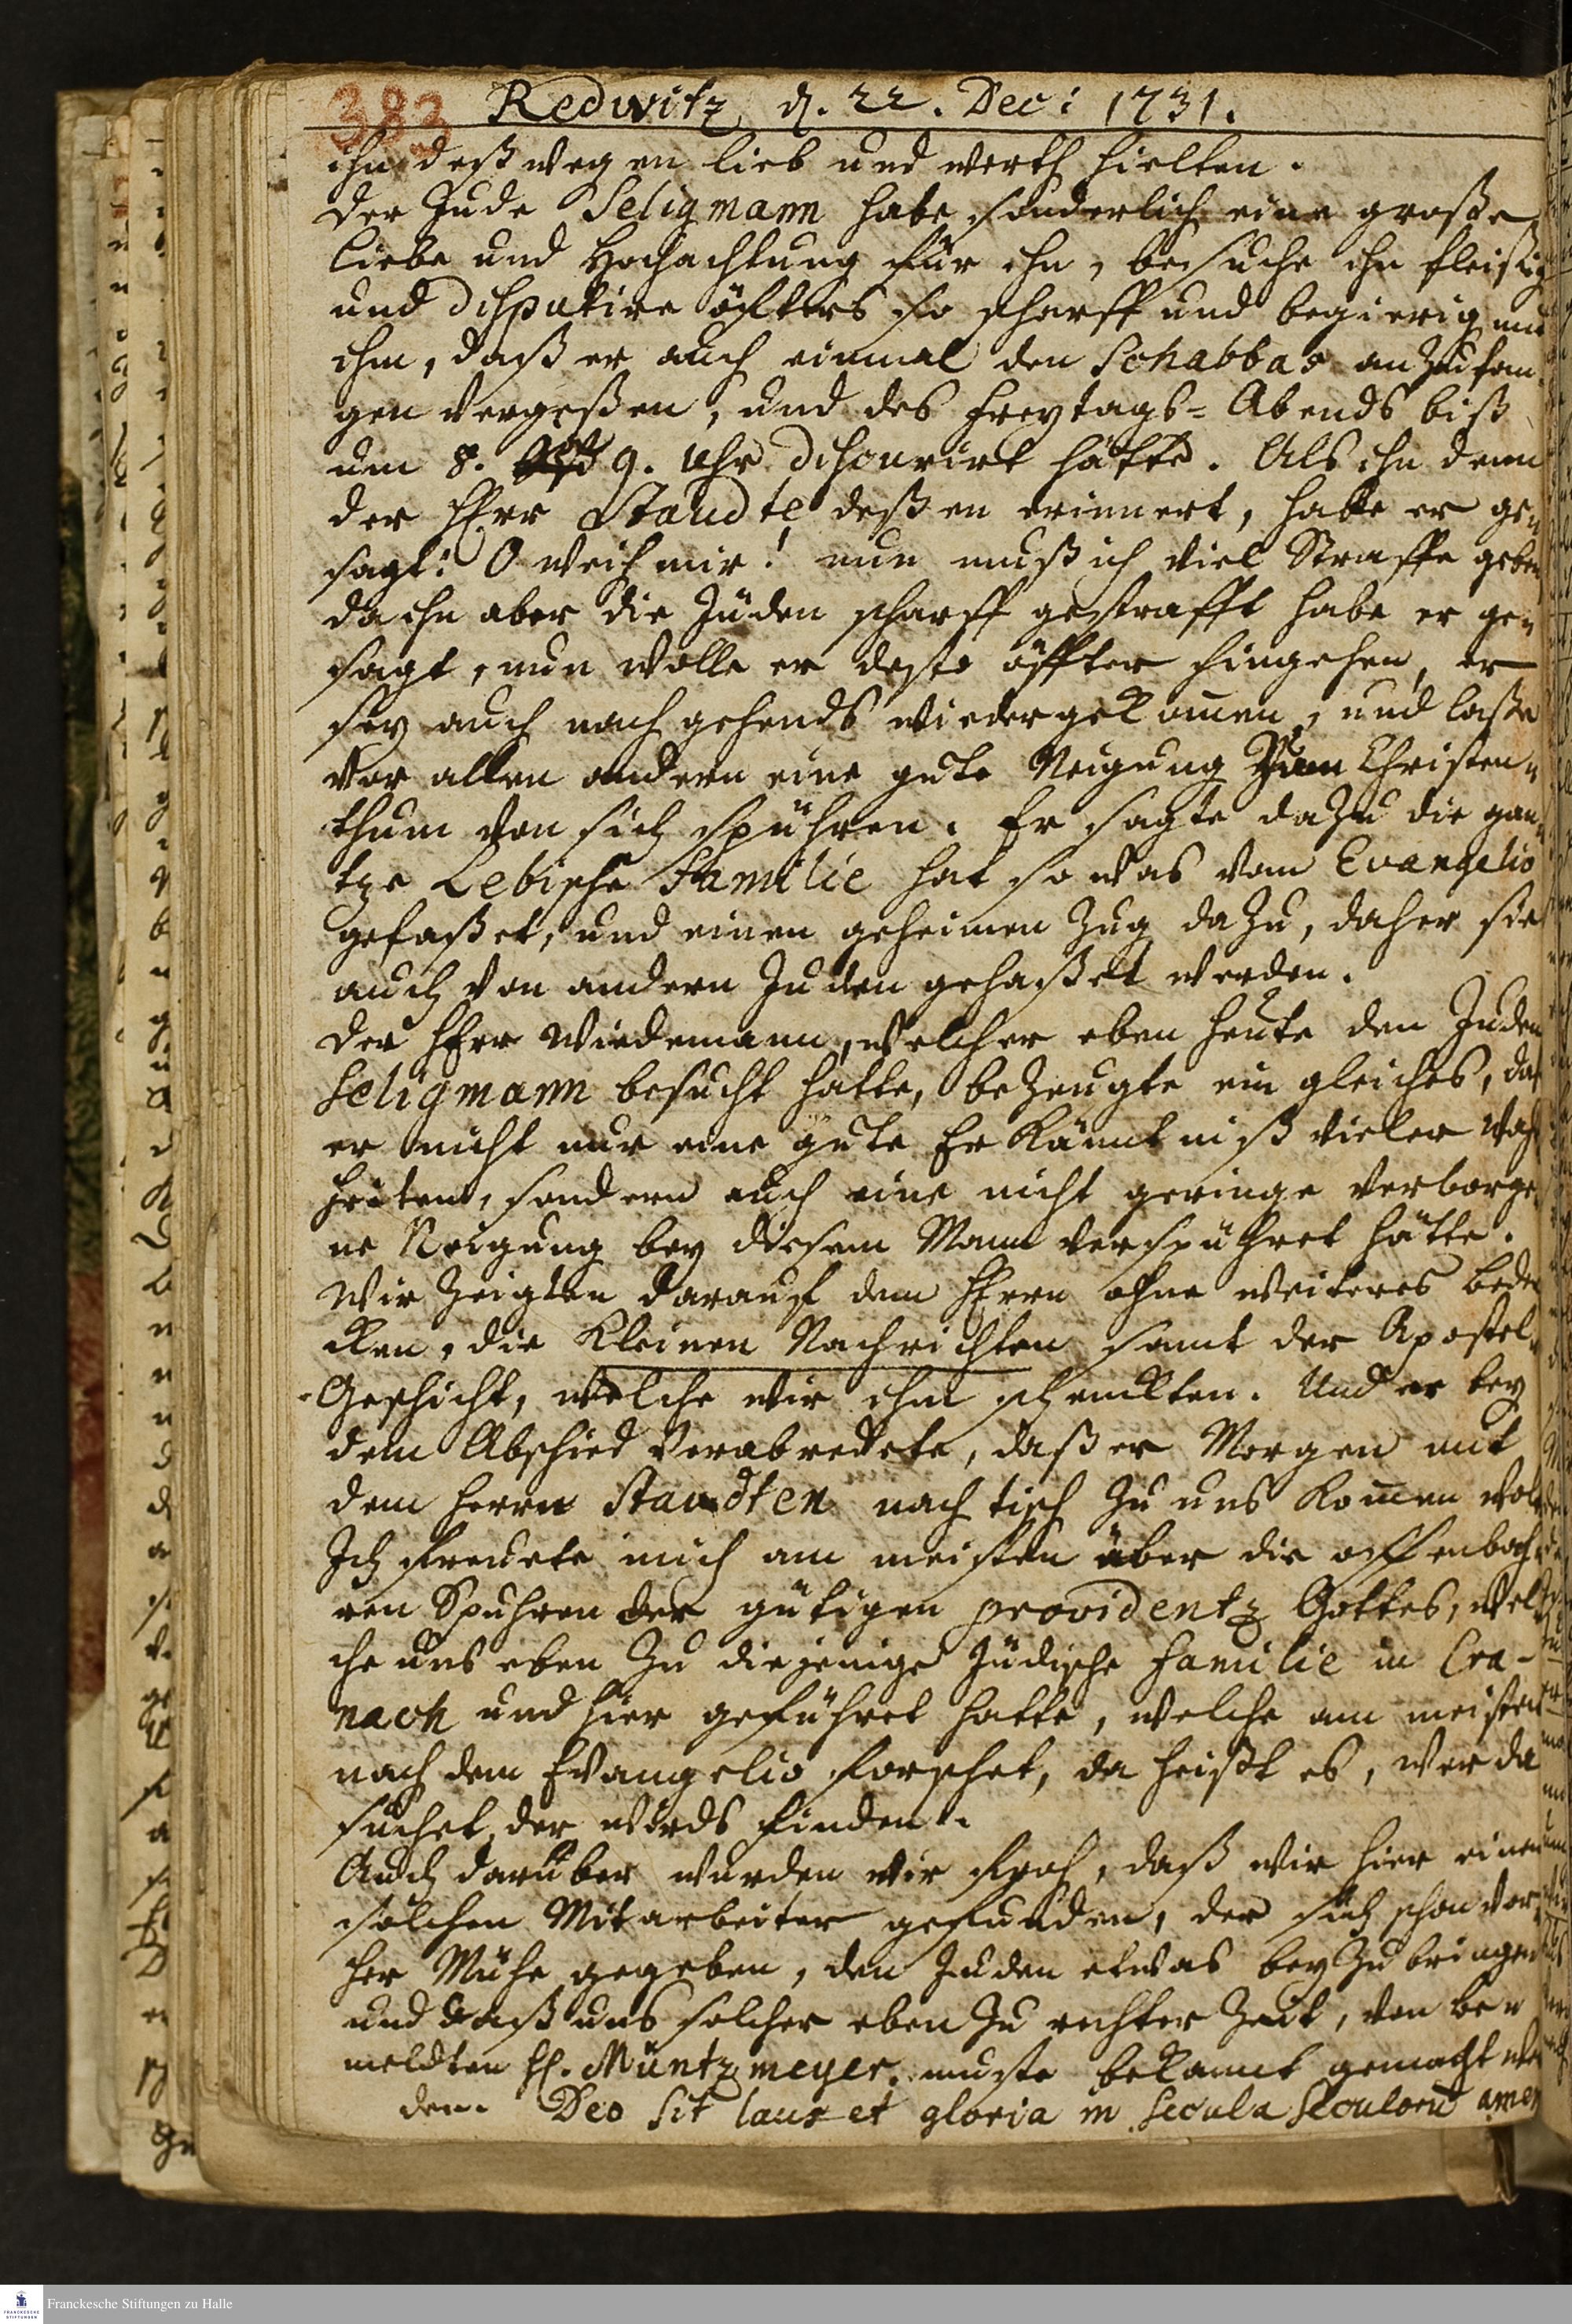 383
Redwitz, d. 22. Dec: 1731.
ihn deßwegen lieb und werth hielten.
Der Jude Seligmann habe sonderlich eine große
Liebe und Hochachtung für ihn, besuche ihn fleißig
und disputire öffters so scharff und begierig mit
ihm, daß er auch einmal den Schabbas anzufan
gen vergeßen, und des Freytags-Abends biß
um 8. 9. Uhr discurirt hätte. Als ihn denn
der HErr Staudte deßen erinnert, habe er ge-
sagt: O weih mir! nun muß ich viel Straffe geben
da ihn aber die Jüden scharff gestrafft habe er ge-
sagt, nun wolle er desto öffter hingehen, er
sey auch nachgehends wiedergekom̄en, und laße
vor allen andern eine gute Neigung zum Christen-
thum von sich spühren. Er sagte dazu die gan-
tze Lebische Familie hat so was vom Evangelio
gefaßet, und einen geheimen Zug dazu, daher sie
auch von andern Juden gehaßet werden.
Der HErr Wiedemann, welcher eben heute den Juden
Seligmann besucht hatte, bezeugte ein gleiches, daß
er nicht nur eine gute Erkänntniß vieler Wahr
heiten, sondern auch eine nicht geringe verborge
ne Neigung bey diesem Mann verspühret hätte.
Wir zeigten darauf dem HErrn ohne weiteres Beden
cken, die Kleinen Nachrichten samt der Apostel-
Geschicht, welche wir ihm schenkten. Und er bey
dem Abschied verabredete, daß er Morgen mit
dem Herrn Staudten nach tisch zu uns kom̄en wol
Ich freuete mich am meisten über die offenbah-
ren Spuhren der gütigen providentz Gottes, wel
che uns eben zu diejenige Jüdische Familie in Cra-
nach und hier geführet hatte, welche am meisten
nach dem Evangelio forschet, da heißt es, wer da
suchet, der wirds finden.
Auch darüber wurden wir froh, daß wir hier einen
solchen Mitarbeiter gefunden, der sich schon vor-
her Mühe gegeben, den Juden etwas beyzubringen
und daß uns solcher eben zu rechter Zeit, von be-
meldten H. Müntzmeyer muste bekannt gemacht wer
den. Deo sit laus et gloria in secula seculorū amen
Franckesche Stiftungen zu Halle